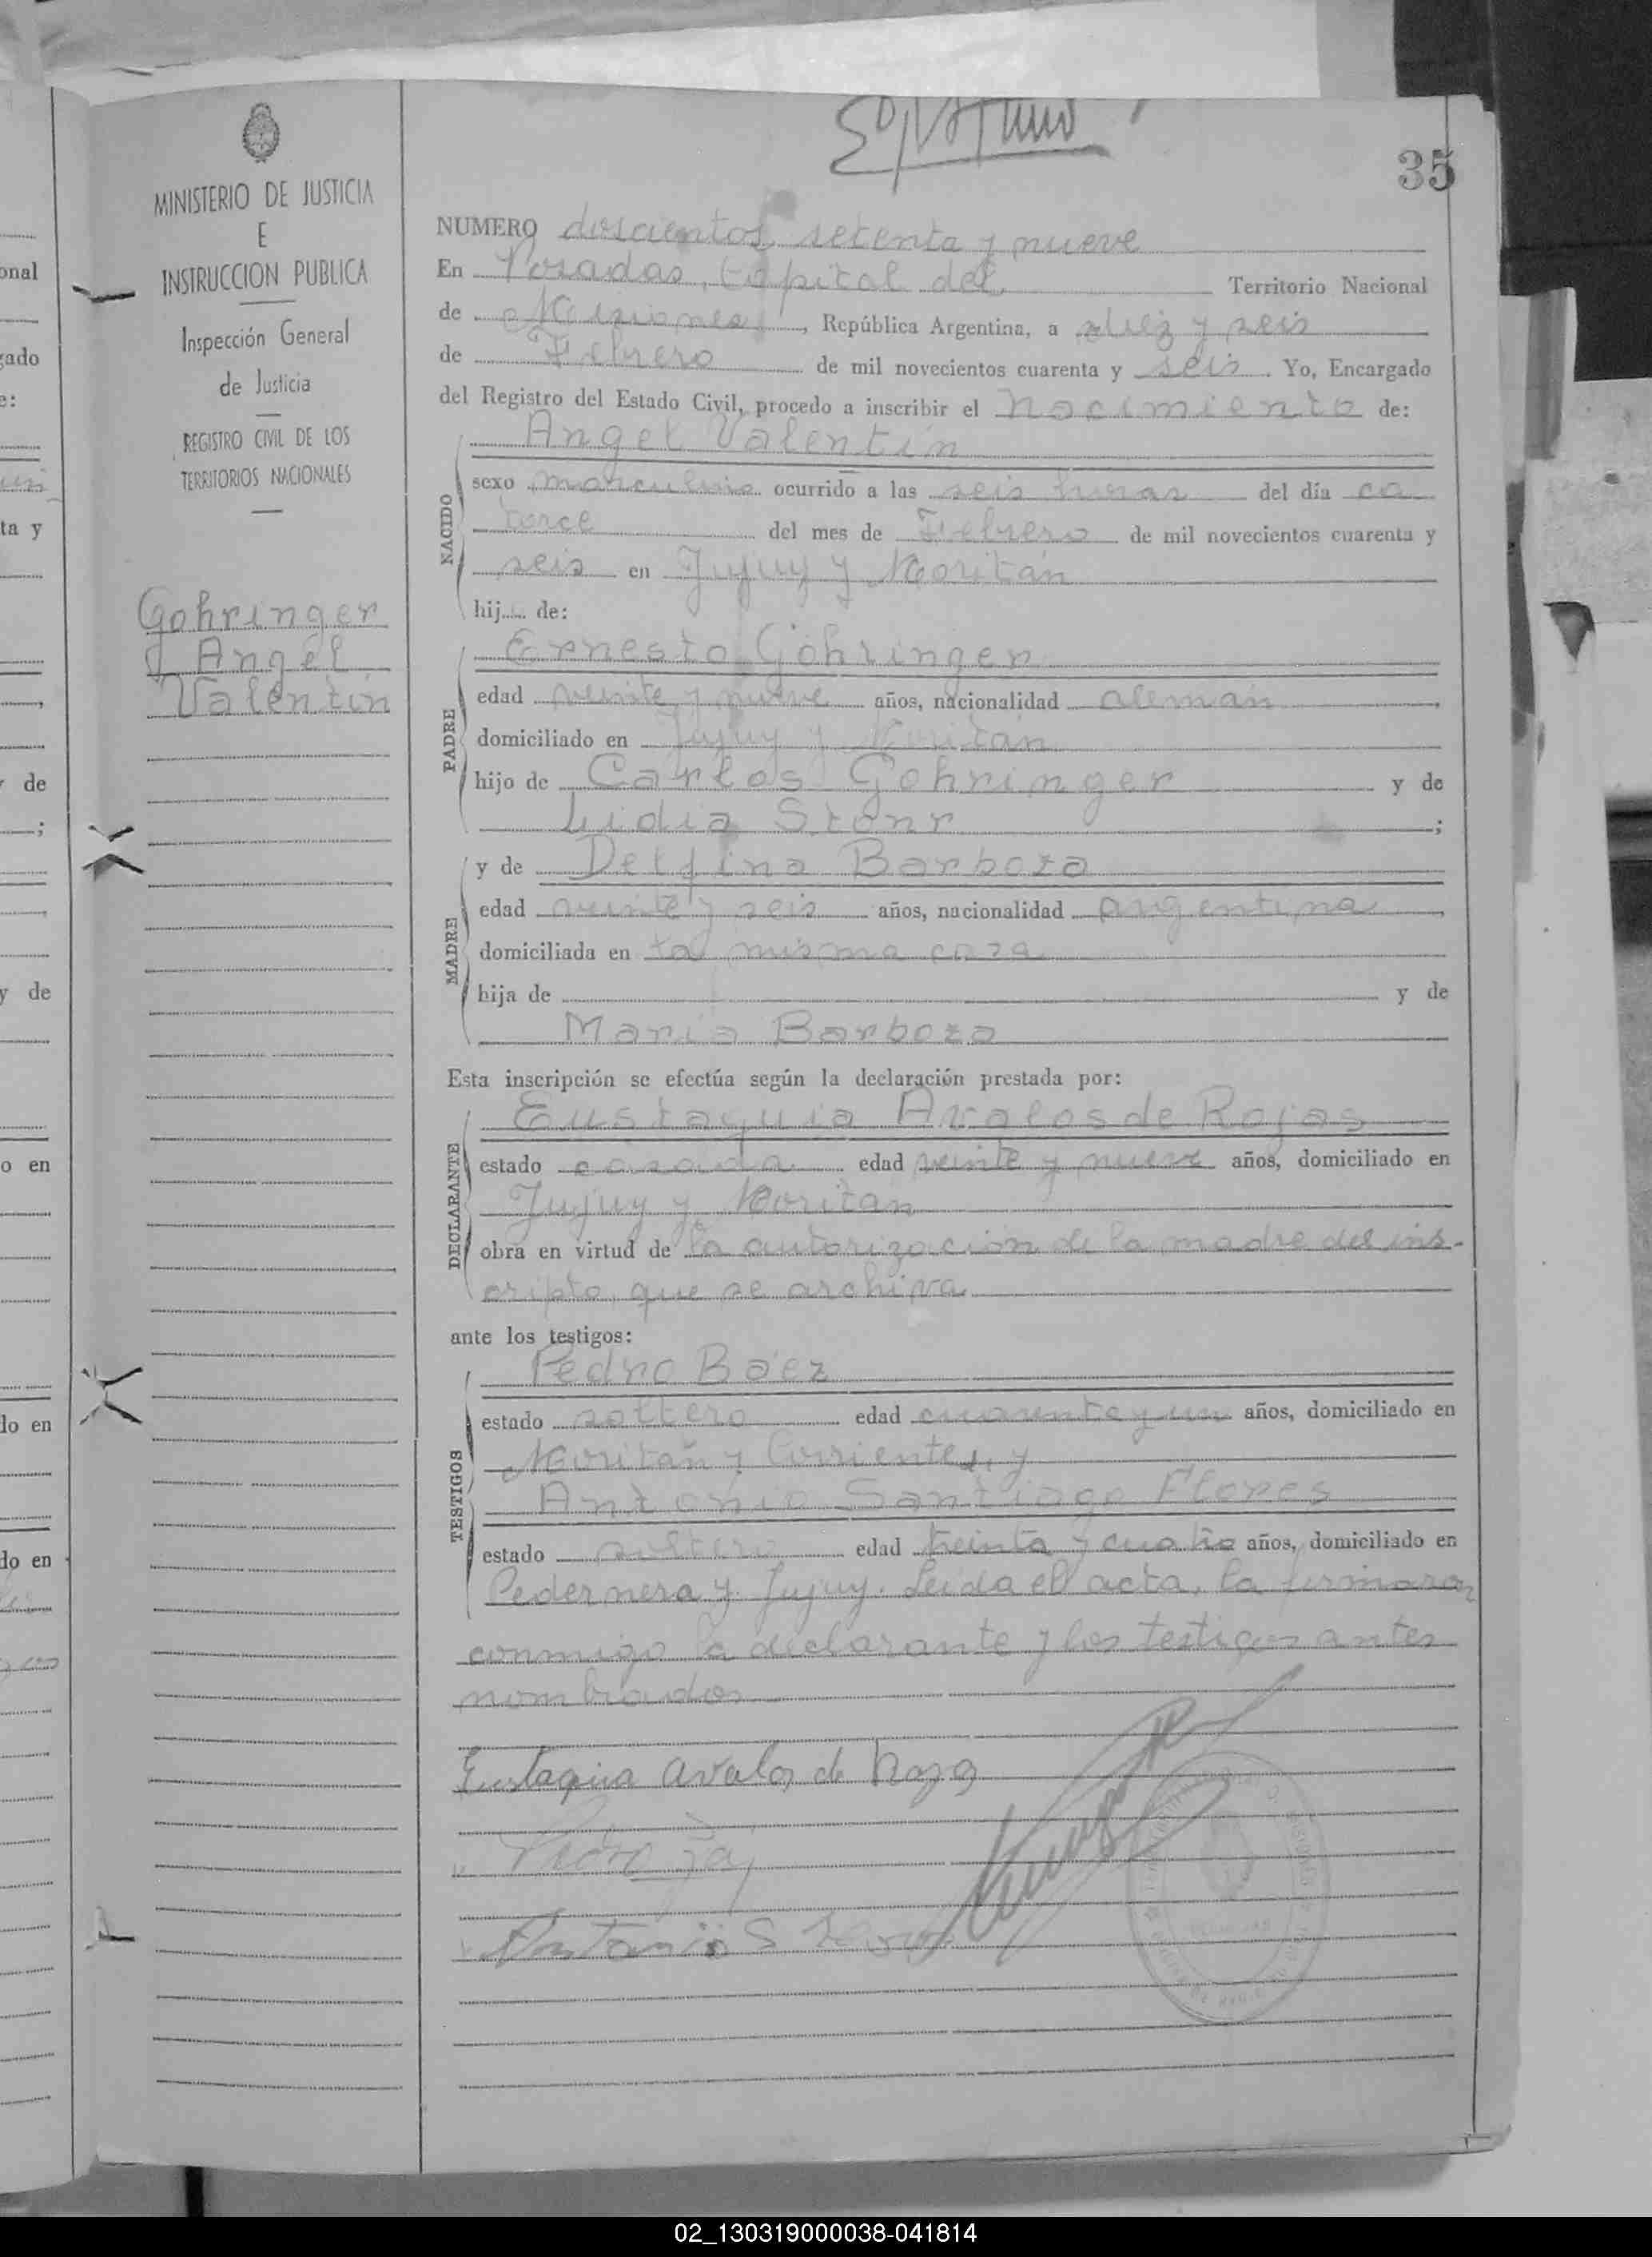 35
MINISTERIO DE JUSTICIA
E
INSTRUCCION PUBLICA
Inspección General
de Justicia
REGISTRO CIVIL DE LOS
TERRITORIOS NACIONALES
Gohringer
Angel
Valentín
NUMERO doscientos setenta y nueve
En Posadas, Capital del Territorio Nacional
de Misiones, República Argentina, a diez y seis
de Febrero de mil novecientos cuarenta y seis. Yo, Encargado
del Registro del Estado Civil, procedo a inscribir el nacimiento de:
Angel Valentín
NACIDO
sexo masculino ocurrido a las seis horas del día ca
torce del mes de Febrero de mil novecientos cuarenta y
seis en Jujuy y Moritán
hij..... de:
Ernesto Göhringer
PADRE
edad veinte y nueve años, nacionalidad alemán
domiciliado en Jujuy y Moritán
hijo de Carlos Gohringer y de
Lidia ;
MADRE
y de Delfina Barboza
edad veinte y seis años, nacionalidad argentina,
domiciliada en la misma casa
hija de y de
María Barboza
Esta inscripción se efectúa según la declaración prestada por:
Eustaquia Avalos de Rojas
DECLARANTE
estado casada edad veinte y nueve años, domiciliado en
Jujuy y Moritán
obra en virtud de la autorización de la madre del ins-
cripto, que se archiva
ante los testigos:
Pedro Báez
TESTIGOS
estado soltero edad cuarenta y un años, domiciliado en
Moritán y Corrientes, y
Antonio Santiago Flores
estado soltero edad treinta y cuatro años, domiciliado en
Pedernera y Jujuy. Leída el acta, la firmaron
conmigo la declarante y los testigos antes
nombrados
Eustaquia Avalos de
02_130319000038-041814